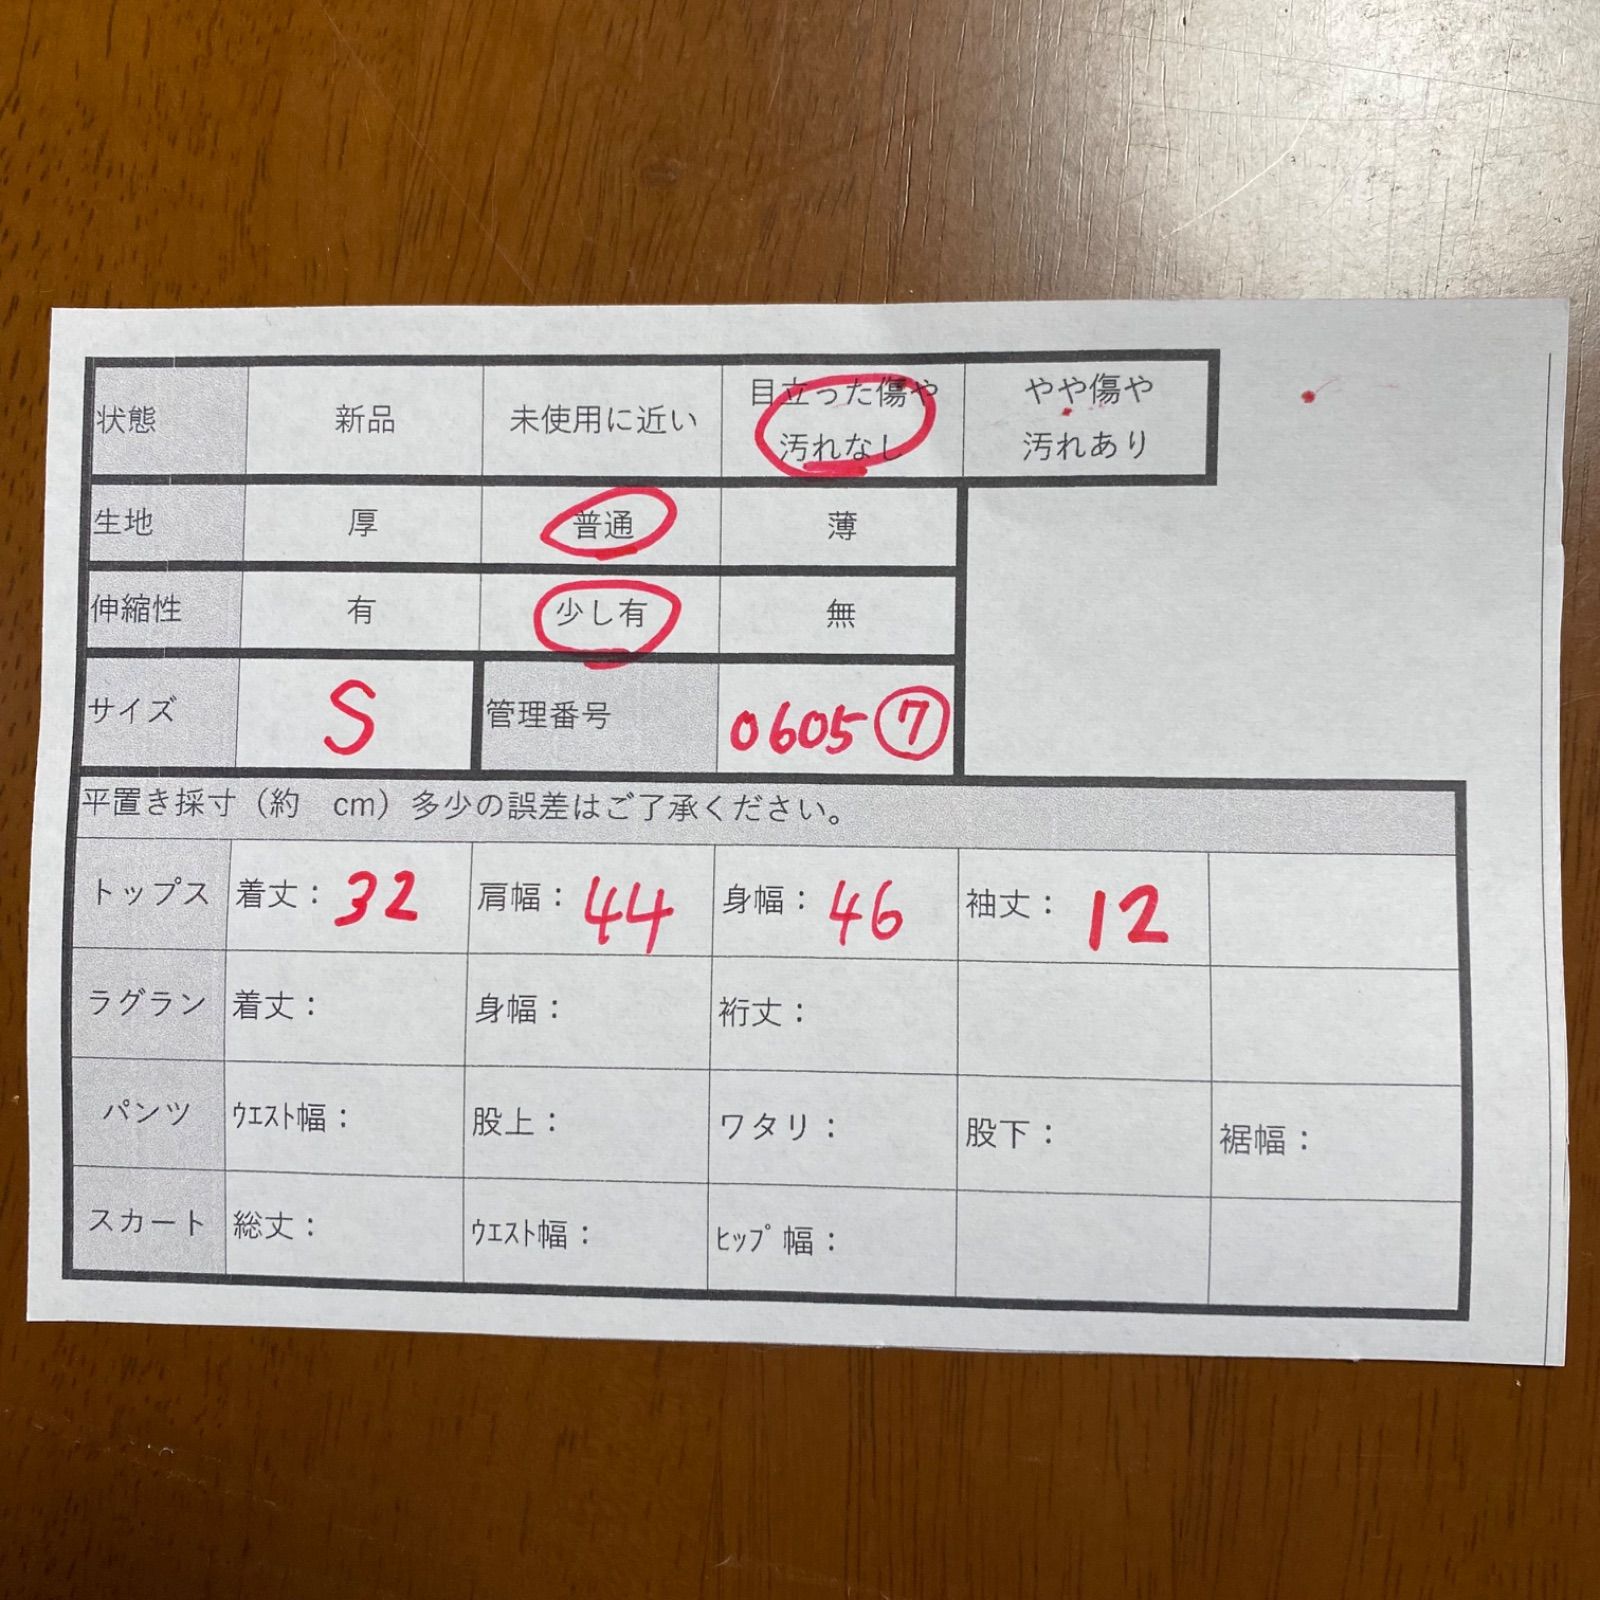 状態 新品 未使用に近い 目立った傷や汚れなし やや傷や汚れあり
生地 厚 普通 薄
伸縮性 有 少し有 無
サイズ S 管理番号 0605⑦
平置き採寸（約　cm）多少の誤差はご了承ください。
トップス 着丈：32 肩幅：44 身幅：46 袖丈：12
ラグラン 着丈： 身幅： 裄丈：
パンツ ｳｴｽﾄ幅： 股上： ワタリ： 股下： 裾幅：
スカート 総丈： ｳｴｽﾄ幅： ﾋｯﾌﾟ幅：